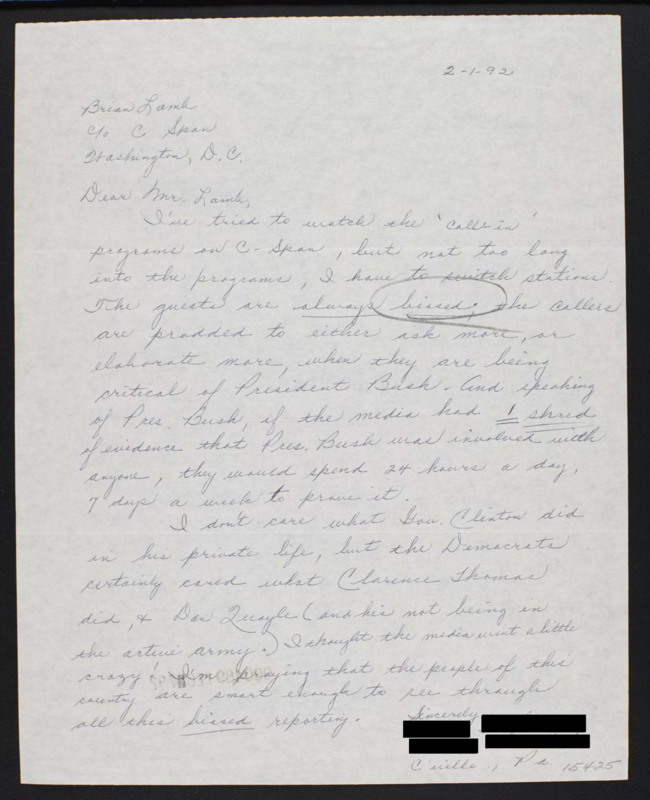 2-1-92
Brian Lamb
c/o C Span
Washington, D.C.
Dear Mr. Lamb,
I've tried to watch the 'call-in'
programs on C-Span, but not too long
into the programs, I have to switch stations.
The guests are always biased; the callers
are prodded to either ask more, or
elaborate more, when they are being
critical of President Bush. And speaking
of Pres. Bush, if the media had 1 shred
of evidence that Pres. Bush was involved with
anyone, they would spend 24 hours a day,
7 days a week to prove it.
I don't care what Gov. Clinton did
in his private life, but the Democrats
certainly cared what Clarence Thomas
did, & Dan Quayle (and his not being in
the active army.) I thought the media went a little
crazy! I'm praying that the people of this
country are smart enough to see through
all this biased reporting.
Sincerely
C'ville., Pa. 15425